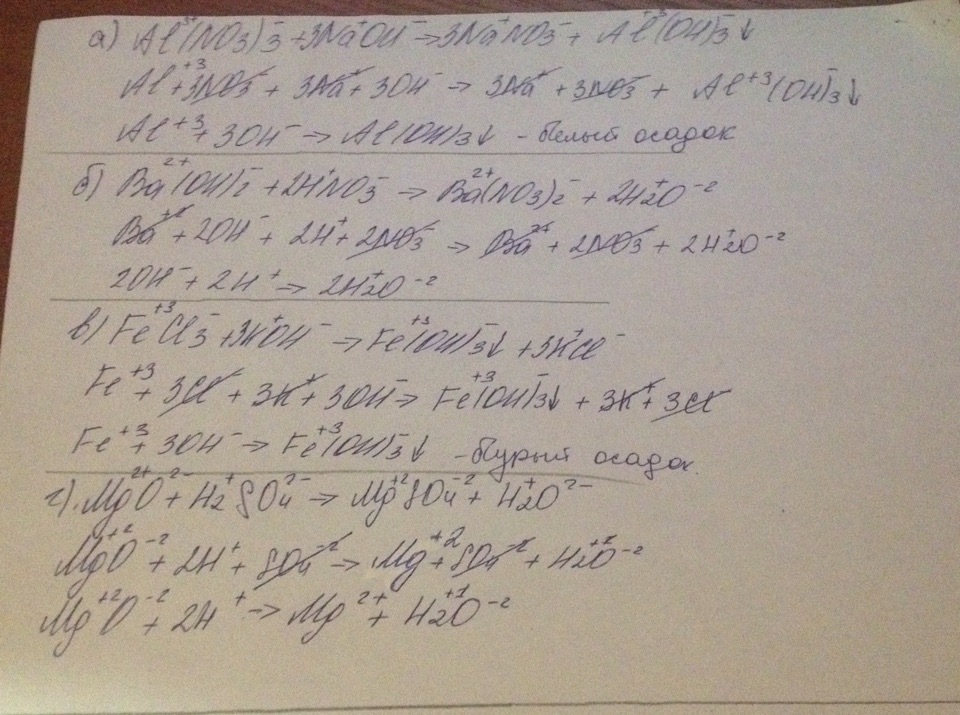 а) Al³⁺(NO₃)₃⁻ + 3Na⁺OH⁻ → 3Na⁺NO₃⁻ + Al⁺³(OH)₃⁻↓
Al⁺³ + 3NO₃⁻ + 3Na⁺ + 3OH⁻ → 3Na⁺ + 3NO₃⁻ + Al⁺³(OH)₃⁻↓
Al⁺³ + 3OH⁻ → Al(OH)₃↓ - белый осадок
б) Ba²⁺(OH)₂⁻ + 2H⁺NO₃⁻ → Ba²⁺(NO₃)₂⁻ + 2H₂⁺O⁻²
Ba⁺² + 2OH⁻ + 2H⁺ + 2NO₃⁻ → Ba²⁺ + 2NO₃⁻ + 2H₂⁺O⁻²
2OH⁻ + 2H⁺ → 2H₂⁺O⁻²
в) Fe⁺³Cl₃⁻ + 3K⁺OH⁻ → Fe⁺³(OH)₃⁻↓ + 3K⁺Cl⁻
Fe⁺³ + 3Cl⁻ + 3K⁺ + 3OH⁻ → Fe⁺³(OH)₃⁻↓ + 3K⁺ + 3Cl⁻
Fe⁺³ + 3OH⁻ → Fe⁺³(OH)₃⁻↓ - бурый осадок.
г). Mg²⁺O²⁻ + H₂⁺SO₄²⁻ → Mg⁺²SO₄⁻² + H₂⁺O²⁻
Mg⁺²O⁻² + 2H⁺ + SO₄⁻² → Mg⁺² + SO₄⁻² + H₂⁺O⁻²
Mg⁺²O⁻² + 2H⁺ → Mg²⁺ + H₂⁺¹O⁻²